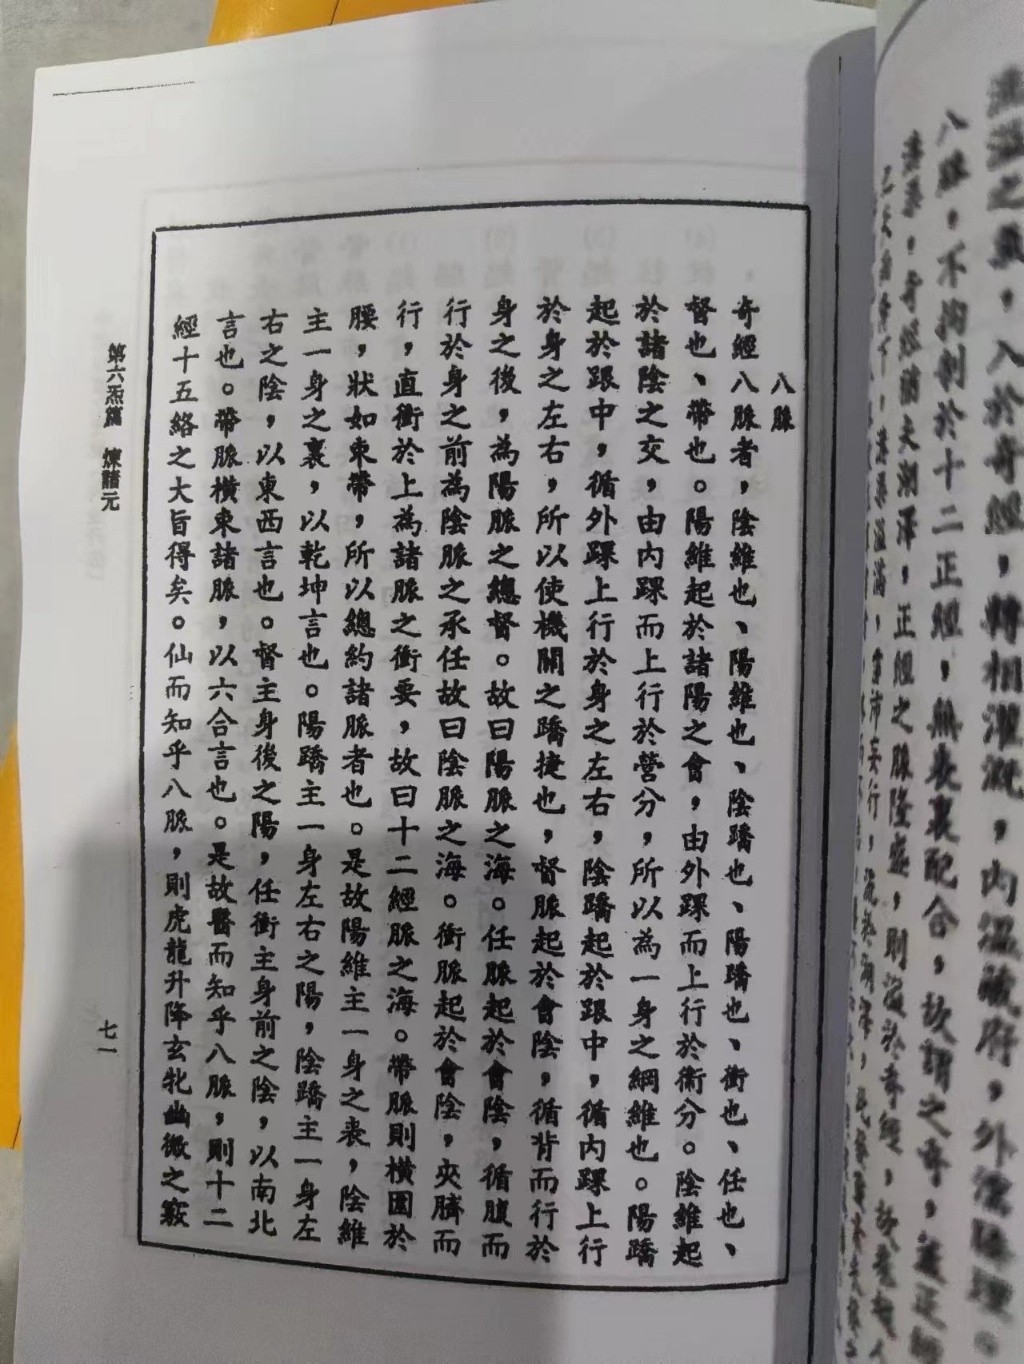 溢之氣，入於奇經，轉相灌溉，內溫臟府，外濡腠理。
八脈，不拘制於十二正經，無表裏配合，故謂之奇，蓋正經
八脈
奇經八脈者，陰維也、陽維也、陰蹻也、陽蹻也、衝也、任也、
督也、帶也。陽維起於諸陽之會，由外踝而上行於衛分。陰維起
於諸陰之交，由內踝而上行於營分，所以為一身之綱維也。陽蹻
起於跟中，循外踝上行於身之左右，陰蹻起於跟中，循內踝上行
於身之左右，所以使機關之蹻捷也，督脈起於會陰，循背而行於
身之後，為陽脈之總督。故曰陽脈之海。任脈起於會陰，循腹而
行於身之前為陰脈之承任故曰陰脈之海。衝脈起於會陰，夾臍而
行，直衝於上為諸脈之衝要，故曰十二經脈之海。帶脈則橫圍於
腰，狀如束帶，所以總約諸脈者也。是故陽維主一身之表，陰維
主一身之裏，以乾坤言也。陽蹻主一身左右之陽，陰蹻主一身左
右之陰，以東西言也。督主身後之陽，任衝主身前之陰，以南北
言也。帶脈橫束諸脈，以六合言也。是故醫而知乎八脈，則十二
經十五絡之大旨得矣。仙而知乎八脈，則虎龍升降玄牝幽微之竅
第六炁篇 煉諸元
七一